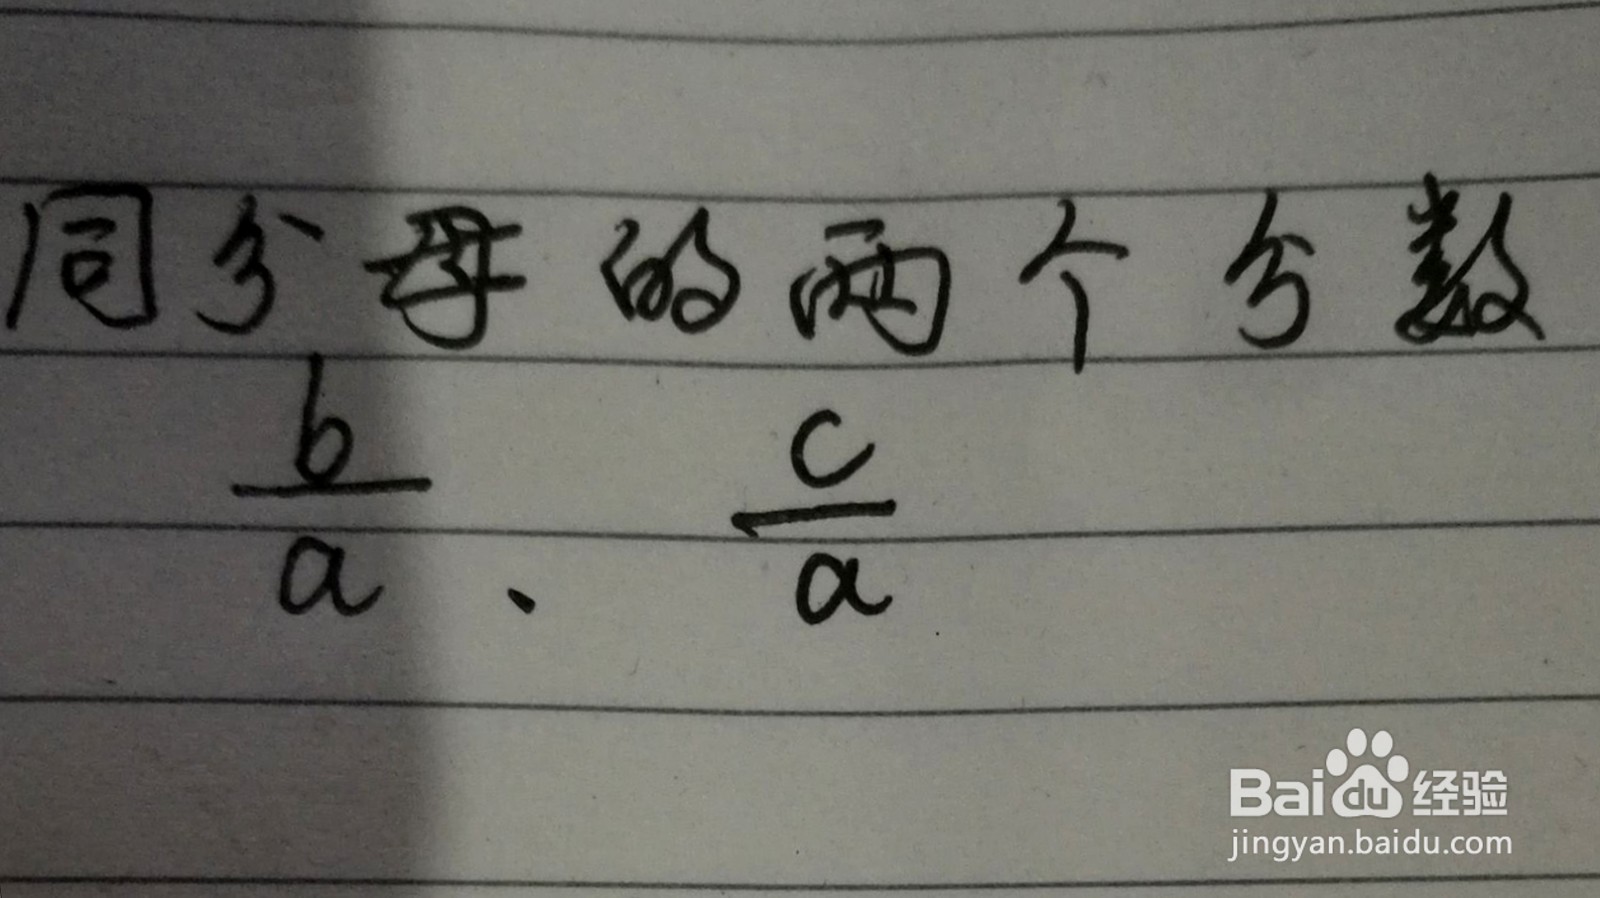 同分母的两个分数
b/a、c/a
Bai du 经验
jingyan.baidu.com